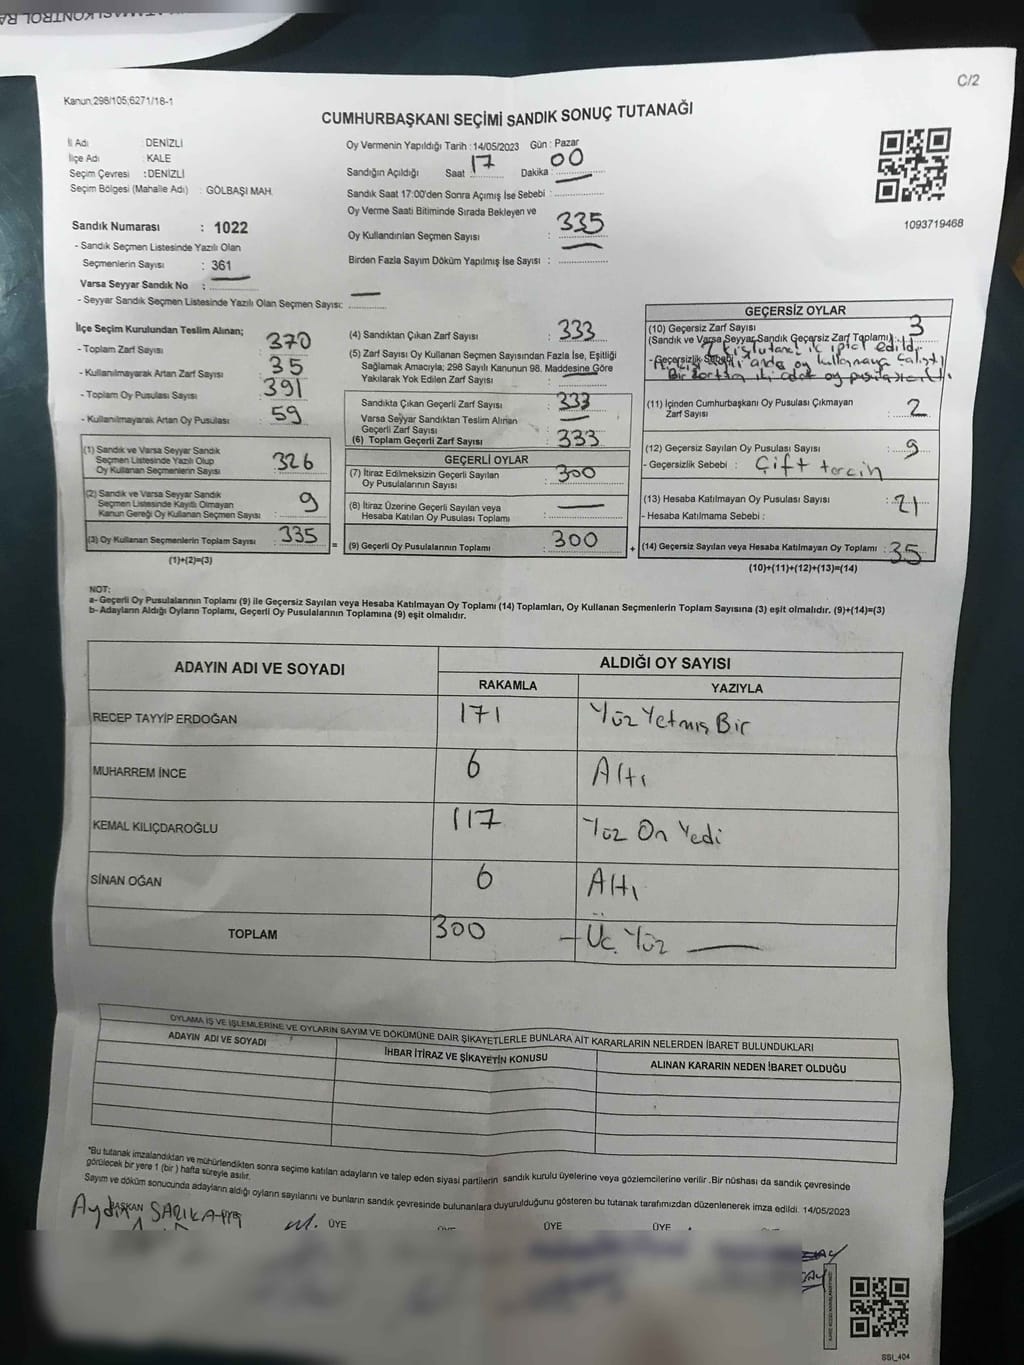 Kanun,298/105,6271/18-1
C/2
CUMHURBAŞKANI SEÇİMİ SANDIK SONUÇ TUTANAĞI
İl Adı : DENİZLİ
İlçe Adı : KALE
Seçim Çevresi : DENİZLİ
Seçim Bölgesi (Mahalle Adı) : GÖLBAŞI MAH.
Sandık Numarası : 1022
- Sandık Seçmen Listesinde Yazılı Olan
Seçmenlerin Sayısı : 361
Varsa Seyyar Sandık No :
- Seyyar Sandık Seçmen Listesinde Yazılı Olan Seçmen Sayısı:
Oy Vermenin Yapıldığı Tarih : 14/05/2023 Gün : Pazar
Sandığın Açıldığı Saat 17 Dakika 00
Sandık Saat 17:00'den Sonra Açımış İse Sebebi :
Oy Verme Saati Bitiminde Sırada Bekleyen ve
Oy Kullandırılan Seçmen Sayısı : 335
Birden Fazla Sayım Döküm Yapılmış İse Sayısı :
1093719468
İlçe Seçim Kurulundan Teslim Alınan;
- Toplam Zarf Sayısı : 370
- Kullanılmayarak Artan Zarf Sayısı : 35
- Toplam Oy Pusulası Sayısı : 391
- Kullanılmayarak Artan Oy Pusulası : 59
(1) Sandık ve Varsa Seyyar Sandık
Seçmen Listesinde Yazılı Olup
Oy Kullanan Seçmenlerin Sayısı : 326
(2) Sandık ve Varsa Seyyar Sandık
Seçmen Listesinde Kayıtlı Olmayan
Kanun Gereği Oy Kullanan Seçmen Sayısı : 9
(3) Oy Kullanan Seçmenlerin Toplam Sayısı : 335
(1)+(2)=(3)
(4) Sandıktan Çıkan Zarf Sayısı : 333
(5) Zarf Sayısı Oy Kullanan Seçmen Sayısından Fazla İse, Eşitliği
Sağlamak Amacıyla; 298 Sayılı Kanunun 98. Maddesine Göre
Yakılarak Yok Edilen Zarf Sayısı :
Sandıkta Çıkan Geçerli Zarf Sayısı : 333
Varsa Seyyar Sandıktan Teslim Alınan
Geçerli Zarf Sayısı :
(6) Toplam Geçerli Zarf Sayısı : 333
GEÇERLİ OYLAR
(7) İtiraz Edilmeksizin Geçerli Sayılan
Oy Pusulalarının Sayısı : 300
(8) İtiraz Üzerine Geçerli Sayılan veya
Hesaba Katılan Oy Pusulası Toplamı :
= (9) Geçerli Oy Pusulalarının Toplamı : 300 +
GEÇERSİZ OYLAR
(10) Geçersiz Zarf Sayısı
(Sandık ve Varsa Seyyar Sandık Geçersiz Zarf Toplamı) : 3
- Geçersizlik Sebebi
iptal edildi
kullanmaya çalıştı
Bir zarftan iki adet oy pusulası
(11) İçinden Cumhurbaşkanı Oy Pusulası Çıkmayan
Zarf Sayısı : 2
(12) Geçersiz Sayılan Oy Pusulası Sayısı : 9
- Geçersizlik Sebebi : Çift tercih
(13) Hesaba Katılmayan Oy Pusulası Sayısı : 21
- Hesaba Katılmama Sebebi :
(14) Geçersiz Sayılan veya Hesaba Katılmayan Oy Toplamı : 35
(10)+(11)+(12)+(13)=(14)
NOT:
a- Geçerli Oy Pusulalarının Toplamı (9) ile Geçersiz Sayılan veya Hesaba Katılmayan Oy Toplamı (14) Toplamları, Oy Kullanan Seçmenlerin Toplam Sayısına (3) eşit olmalıdır. (9)+(14)=(3)
b- Adayların Aldığı Oyların Toplamı, Geçerli Oy Pusulalarının Toplamına (9) eşit olmalıdır.
ADAYIN ADI VE SOYADI
ALDIĞI OY SAYISI
RAKAMLA YAZIYLA
RECEP TAYYİP ERDOĞAN 171 Yüz Yetmiş Bir
MUHARREM İNCE 6 Altı
KEMAL KILIÇDAROĞLU 117 Yüz On Yedi
SİNAN OĞAN 6 Altı
TOPLAM 300 Üç Yüz
OYLAMA İŞ VE İŞLEMLERİNE VE OYLARIN SAYIM VE DÖKÜMÜNE DAİR ŞİKAYETLERLE BUNLARA AİT KARARLARIN NELERDEN İBARET BULUNDUKLARI
ADAYIN ADI VE SOYADI İHBAR İTİRAZ VE ŞİKAYETİN KONUSU ALINAN KARARIN NEDEN İBARET OLDUĞU
*Bu tutanak imzalandıktan ve mühürlendikten sonra seçime katılan adayların ve talep eden siyasi partilerin sandık kurulu üyelerine veya gözlemcilerine verilir .Bir nüshası da sandık çevresinde
görülecek bir yere 1 (bir ) hafta süreyle asılır.
Sayım ve döküm sonucunda adayların aldığı oyların sayılarını ve bunların sandık çevresinde bulunanlara duyurulduğunu gösteren bu tutanak tarafımızdan düzenlenerek imza edildi. 14/05/2023
BAŞKAN ÜYE ÜYE ÜYE ÜYE
SSI_404